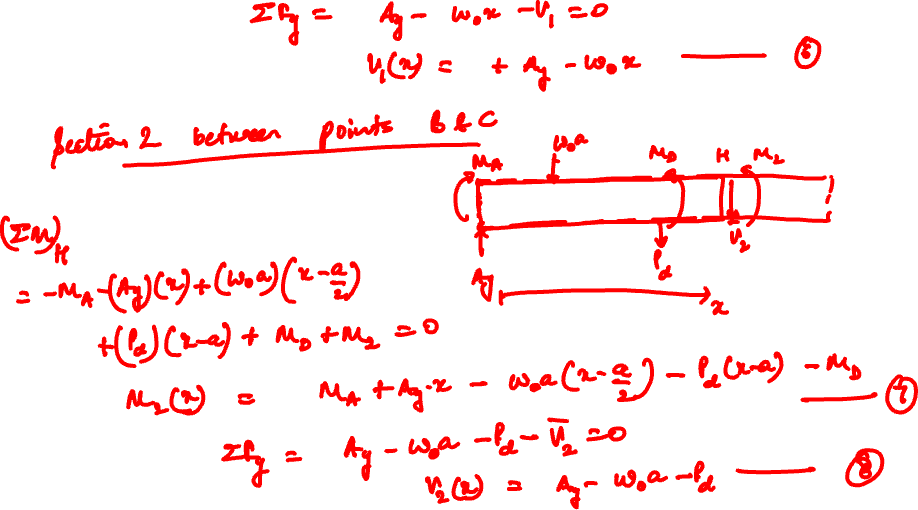 ΣF_y = A_y - w₀x - V₁ = 0
V₁(x) = + A_y - w₀x —— ⑥
Section 2 between points B & C
w₀a
M_A M_D H M₂
V₂
P_d
A_y
x
(ΣM)_H
= -M_A - (A_y)(x) + (w₀a)(x - a/2)
+ (P_d)(x-a) + M_D + M₂ = 0
M₂(x) = M_A + A_y·x - w₀a(x - a/2) - P_d(x-a) - M_D —— ⑦
ΣF_y = A_y - w₀a - P_d - V₂ = 0
V₂(x) = A_y - w₀a - P_d —— ⑧